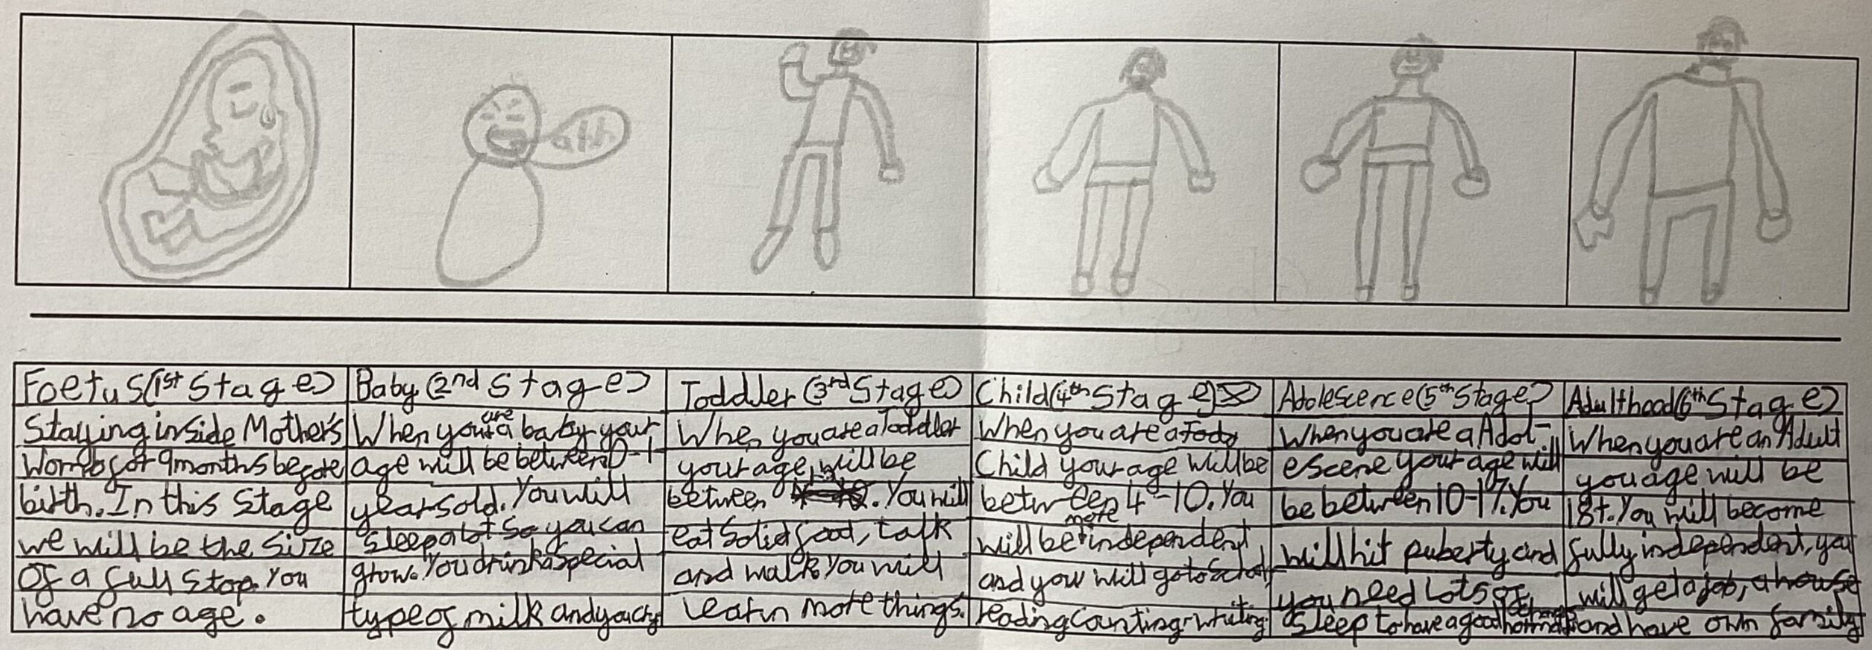 ahh
Foetus (1st Stage)
Staying inside Mother's
Womb for 9 months before
birth. In this Stage
we will be the size
of a full stop. You
have no age.
Baby (2nd Stage)
When you are a baby your
age will be between 0-1
years old. You will
sleep a lot so you can
grow. You drink a special
type of milk and you cry
Toddler (3rd Stage)
When you are a Toddler
your age will be
between . You will
eat solid food, talk
and walk You will
learn more things.
Child (4th Stage)
When you are a
Child your age will be
between 4-10. You
will be more independent
and you will go to School
reading counting writing.
Adolescence (5th Stage)
When you are a Adol-
escene your age will
be between 10-17. You
will hit puberty and
you need Lots of
sleep to have a good
Adulthood (6th Stage)
When you are an Adult
you age will be
18+. You will become
fully independent, you
will get a job, a house
and have own family